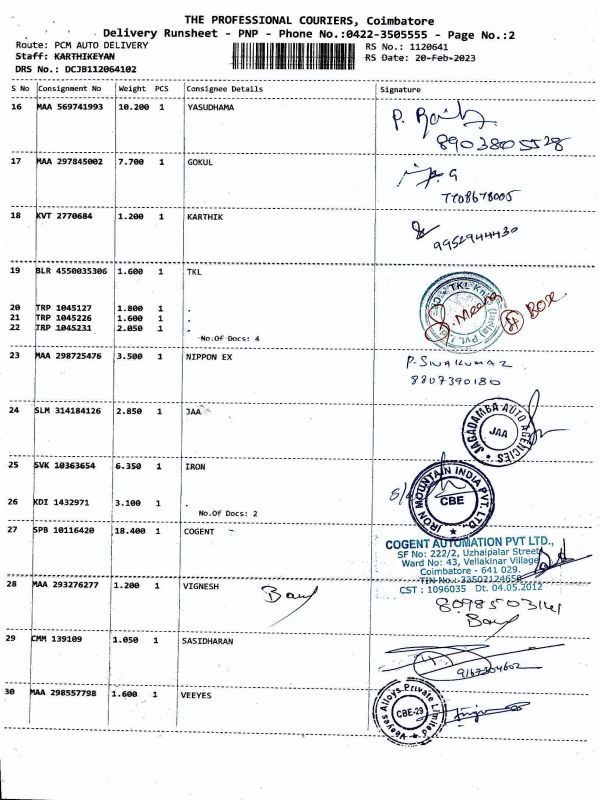 THE PROFESSIONAL COURIERS, Coimbatore
Delivery Runsheet - PNP - Phone No.:0422-3505555 - Page No.:2
Route: PCM AUTO DELIVERY
RS No.: 1120641
Staff: KARTHIKEYAN
RS Date: 20-Feb-2023
DRS No.: DCJB112064102
S No Consignment No Weight PCS Consignee Details Signature
16 MAA 569741993 10.200 1 YASUDHAMA
8903805528
17 MAA 297845002 7.700 1 GOKUL
7708678005
18 KVT 2770684 1.200 1 KARTHIK
9952944430
19 BLR 4550035306 1.600 1 TKL
20 TRP 1045127 1.800 1 .
21 TRP 1045226 1.600 1 .
22 TRP 1045231 2.050 1 .
No.Of Docs: 4
TKL (India) Pvt.
Meena
4 Box
23 MAA 298725476 3.500 1 NIPPON EX
P. SIVAKUMAR
8807390180
24 SLM 314184126 2.850 1 JAA
JAGADAMBA AUTO AGENCIES
JAA
25 SVK 10363654 6.350 1 IRON
26 KDI 1432971 3.100 1 .
No.Of Docs: 2
IRON MOUNTAIN INDIA PVT. LTD.,
CBE
27 SPB 10116420 18.400 1 COGENT
COGENT AUTOMATION PVT LTD.,
SF No: 222/2, Uzhaipalar Street
Ward No: 43, Vellakinar Village
Coimbatore - 641 029.
TIN No.: 33502124650
CST : 1096035 Dt. 04.05.2012
28 MAA 293276277 1.200 1 VIGNESH
8098503141
29 CMM 139109 1.050 1 SASIDHARAN
30 MAA 298557798 1.600 1 VEEYES
Veeyes Alloys Private Limited
CBE-29